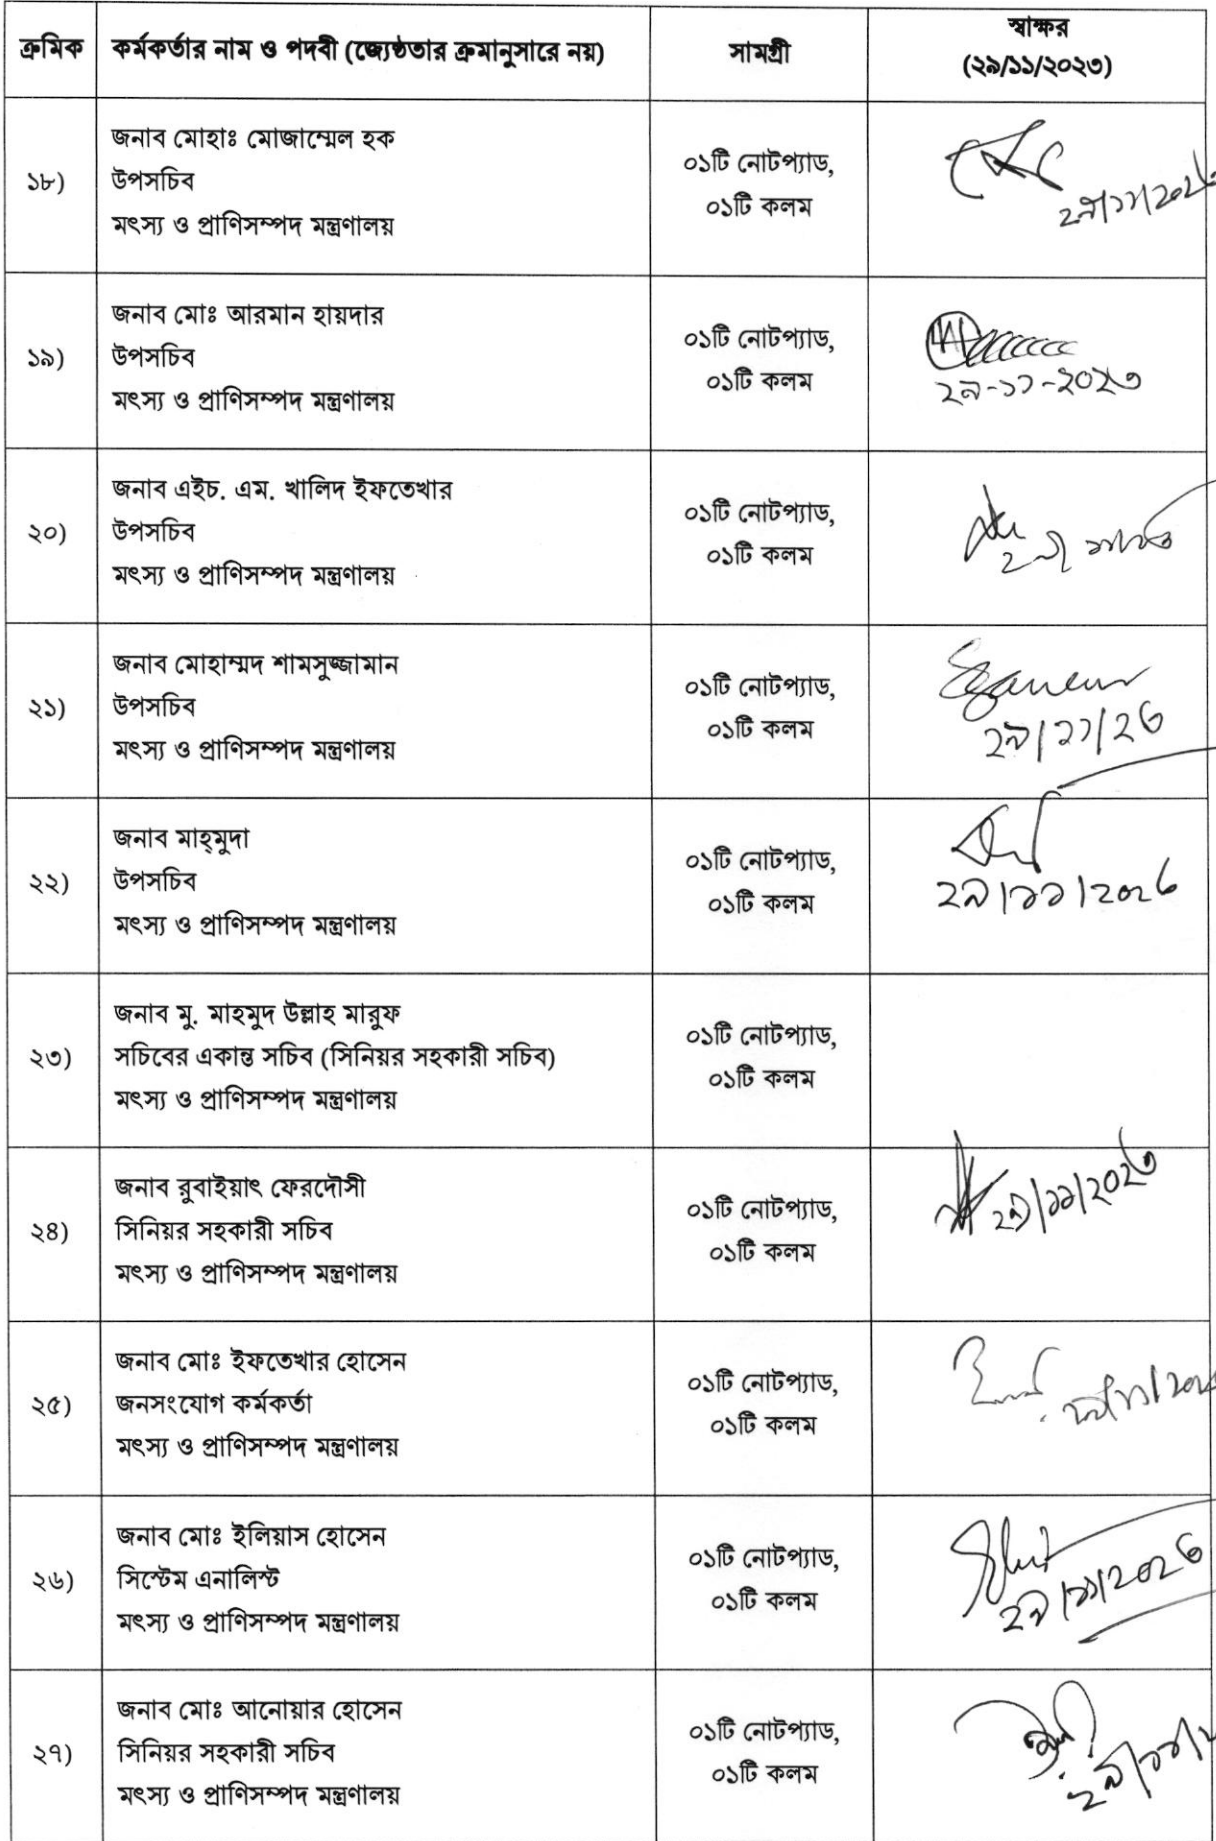 ক্রমিক
কর্মকর্তার নাম ও পদবী (জ্যেষ্ঠতার ক্রমানুসারে নয়)
সামগ্রী
স্বাক্ষর
(২৯/১১/২০২৩)
১৮)
জনাব মোহাঃ মোজাম্মেল হক
উপসচিব
মৎস্য ও প্রাণিসম্পদ মন্ত্রণালয়
০১টি নোটপ্যাড,
০১টি কলম
২৯/১১/২০২৩
১৯)
জনাব মোঃ আরমান হায়দার
উপসচিব
মৎস্য ও প্রাণিসম্পদ মন্ত্রণালয়
০১টি নোটপ্যাড,
০১টি কলম
২৯-১১-২০২৩
২০)
জনাব এইচ. এম. খালিদ ইফতেখার
উপসচিব
মৎস্য ও প্রাণিসম্পদ মন্ত্রণালয়
০১টি নোটপ্যাড,
০১টি কলম
২১)
জনাব মোহাম্মদ শামসুজ্জামান
উপসচিব
মৎস্য ও প্রাণিসম্পদ মন্ত্রণালয়
০১টি নোটপ্যাড,
০১টি কলম
২৯/১১/২৩
২২)
জনাব মাহ্‌মুদা
উপসচিব
মৎস্য ও প্রাণিসম্পদ মন্ত্রণালয়
০১টি নোটপ্যাড,
০১টি কলম
২৯/১১/২০২৩
২৩)
জনাব মু. মাহমুদ উল্লাহ মারুফ
সচিবের একান্ত সচিব (সিনিয়র সহকারী সচিব)
মৎস্য ও প্রাণিসম্পদ মন্ত্রণালয়
০১টি নোটপ্যাড,
০১টি কলম
২৪)
জনাব রুবাইয়াৎ ফেরদৌসী
সিনিয়র সহকারী সচিব
মৎস্য ও প্রাণিসম্পদ মন্ত্রণালয়
০১টি নোটপ্যাড,
০১টি কলম
২৯/১১/২০২৩
২৫)
জনাব মোঃ ইফতেখার হোসেন
জনসংযোগ কর্মকর্তা
মৎস্য ও প্রাণিসম্পদ মন্ত্রণালয়
০১টি নোটপ্যাড,
০১টি কলম
২৬)
জনাব মোঃ ইলিয়াস হোসেন
সিস্টেম এনালিস্ট
মৎস্য ও প্রাণিসম্পদ মন্ত্রণালয়
০১টি নোটপ্যাড,
০১টি কলম
২৯/১১/২০২৩
২৭)
জনাব মোঃ আনোয়ার হোসেন
সিনিয়র সহকারী সচিব
মৎস্য ও প্রাণিসম্পদ মন্ত্রণালয়
০১টি নোটপ্যাড,
০১টি কলম